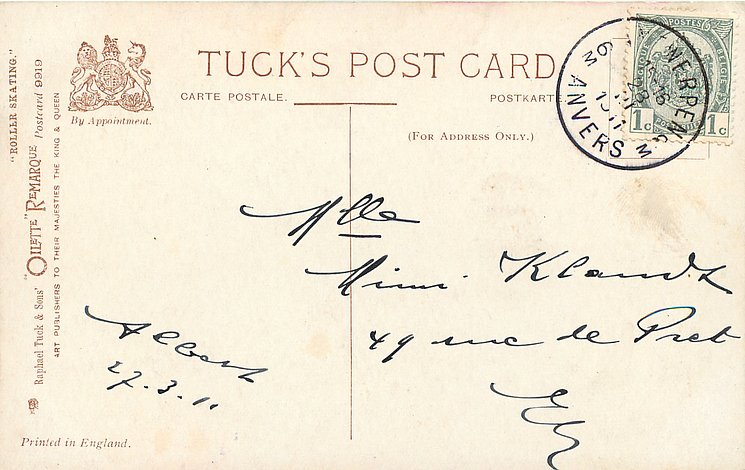 "ROLLER SKATING."
Raphael Tuck & Sons' "OILETTE" REMARQUE Postcard 9919
ART PUBLISHERS TO THEIR MAJESTIES THE KING & QUEEN
By Appointment.
TUCK'S POST CARD
CARTE POSTALE.
POSTKARTE
(FOR ADDRESS ONLY.)
POSTES
BELGIË
1c 1c
ANTWERPEN
28
1911
ANVERS
Mlle
Mimi Klandt
49 rue de Pret
E/V
Albert
27.3.11
Printed in England.